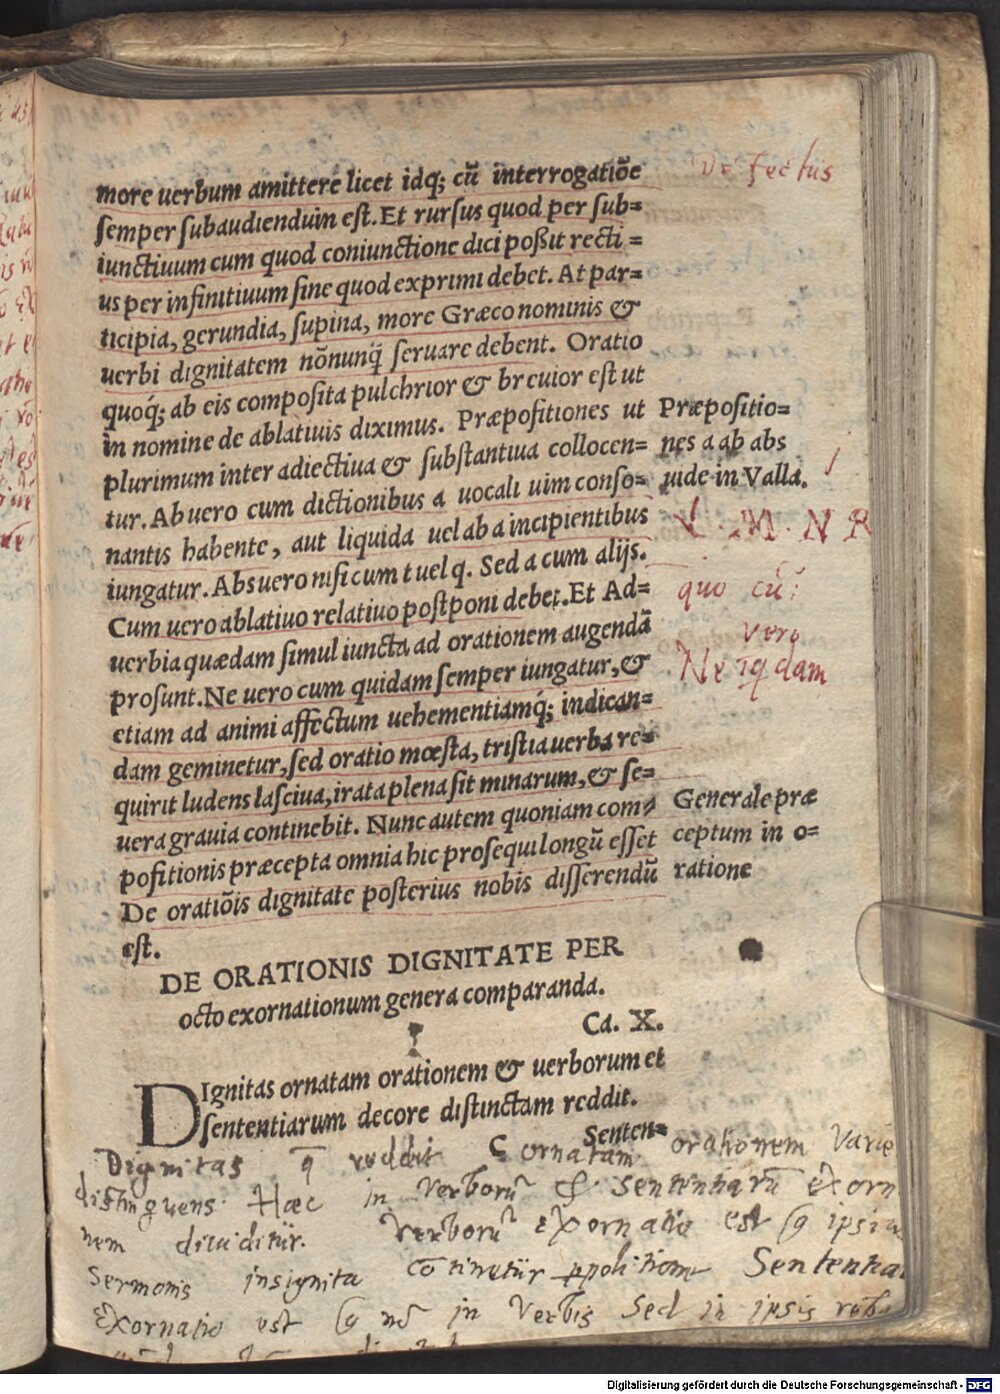 more uerbum amittere licet idq; cū interrogatiōe
semper subaudiendum est. Et rursus quod per sub=
iunctiuum cum quod coniunctione dici poßit recti=
us per infinitiuum sine quod exprimi debet. At par=
ticipia, gerundia, supina, more Græco nominis &
uerbi dignitatem nōnunq̄ seruare debent. Oratio
quoq́; ab eis composita pulchrior & breuior est ut
in nomine de ablatiuis diximus. Præpositiones ut
plurimum inter adiectiua & substantiua collocen=
tur. Ab uero cum dictionibus a uocali uim conso=
nantis habente, aut liquida uel ab a incipientibus
iungatur. Abs uero nisi cum t uel q. Sed a cum alijs.
Cum uero ablatiuo relatiuo postponi debet. Et Ad=
uerbia quædam simul iuncta ad orationem augendā
prosunt. Ne uero cum quidam semper iungatur, &
etiam ad animi affectum uehementiamq́; indican=
dam geminetur, sed oratio mœsta, tristia uerba re=
quirit ludens lasciua, irata plena sit minarum, & se=
uera grauia continebit. Nunc autem quoniam com=
positionis præcepta omnia hic prosequi longū esset
De oratiōis dignitate posterius nobis disserendū
est.
De fectiis
Præpositio=
nes a ab abs
uide in Valla.
L . M . N R
quo cū:
vero
Ne iqdam
Generale præ
ceptum in o=
ratione
DE ORATIONIS DIGNITATE PER
octo exornationum genera comparanda.
Ca. X.
DIgnitas ornatam orationem & uerborum et
sententiarum decore distinctam reddit.
Senten=
Dignitas q̄ reddit ornatam orationem varie
distinguens. Hæc in verborū & sententiarū exorn
nem diuiditur. Verborū exornatio est q ipsiu
Sermonis insignita cōtinetur ppolitione Sententia
Exornatio est q nō in verbis Sed in ipsis reb